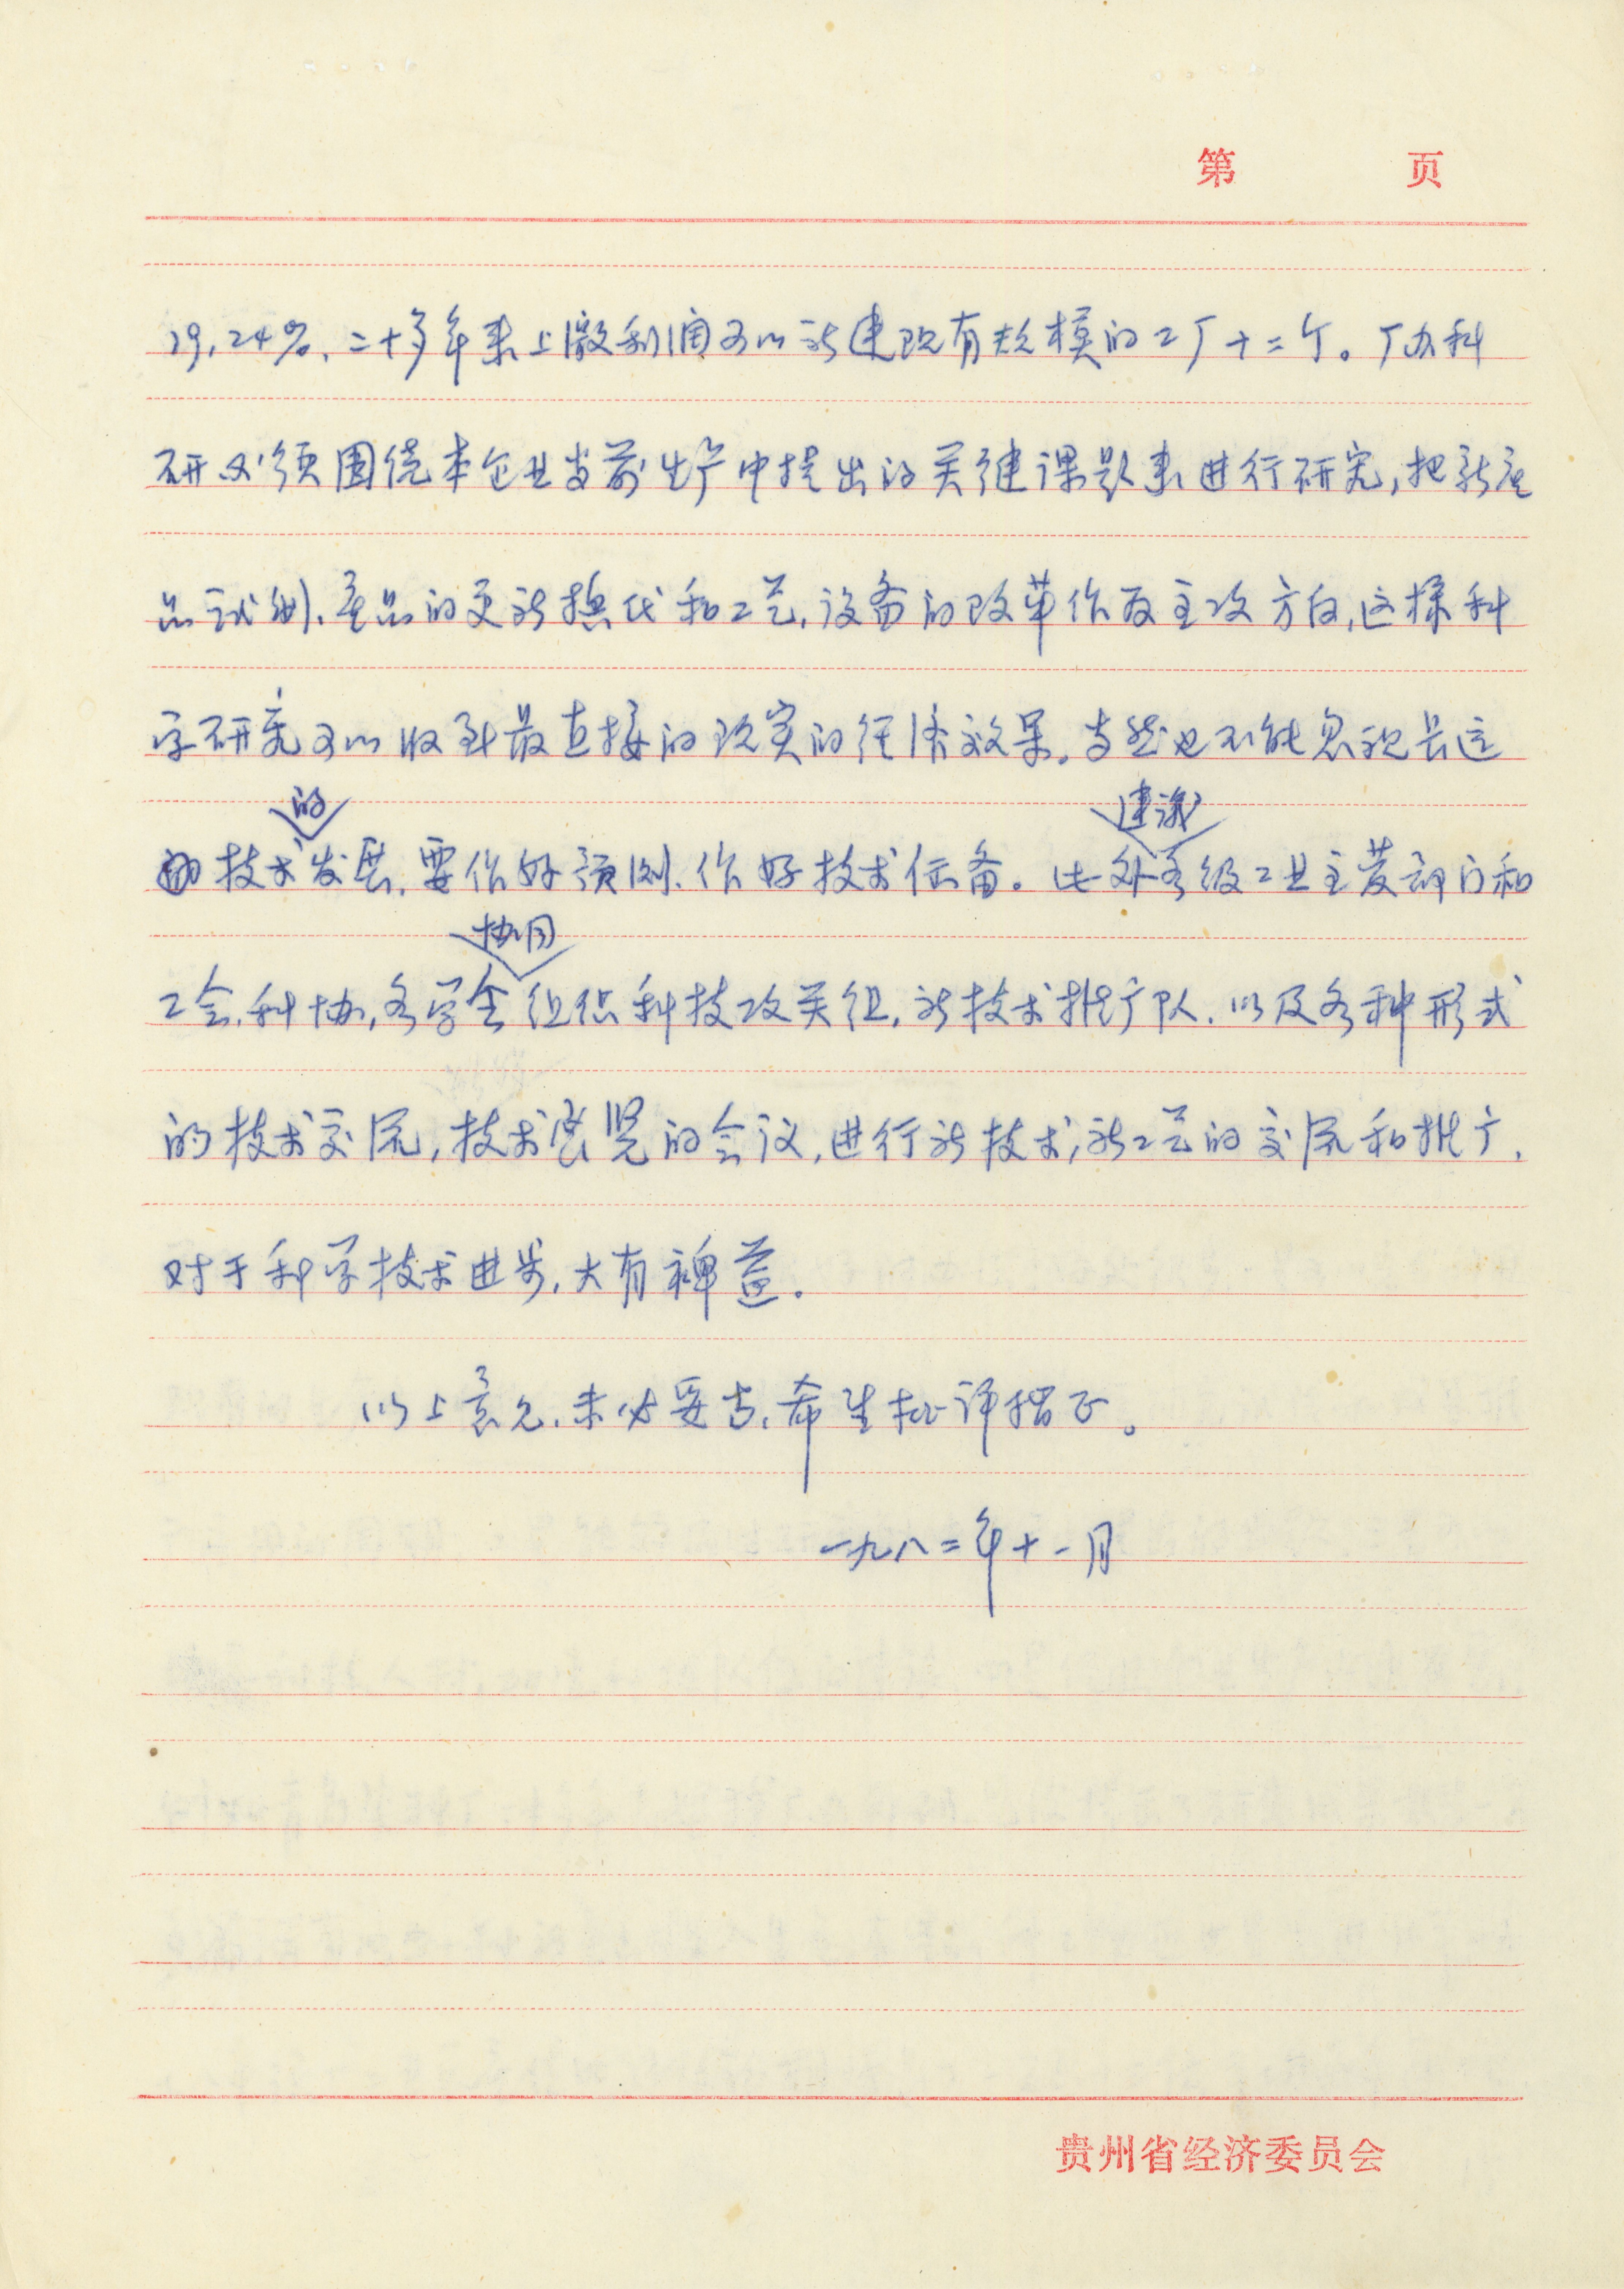 第 页
29.24%,二十多年来上缴利润可以新建现有规模的工厂十二个。厂办科
研必须围绕本企业当前生产中提出的关键课题来进行研究,把新产
品试制、产品的更新换代和工艺,设备的改革作为主攻方向,这样科
学研究可以收到最直接的现实的经济效果。当然也不能忽视长远
的
建议
技术发展,要作好预测、作好技术储备。此外各级工业主管部门和
协同
工会,科协,各学会组织科技攻关组,新技术推广队,以及各种形式
的技术交流,技术展览的会议,进行新技术,新工艺的交流和推广,
对于科学技术进步,大有裨益。
以上意见,未必妥当,希望批评指正。
一九八二年十一月
贵州省经济委员会